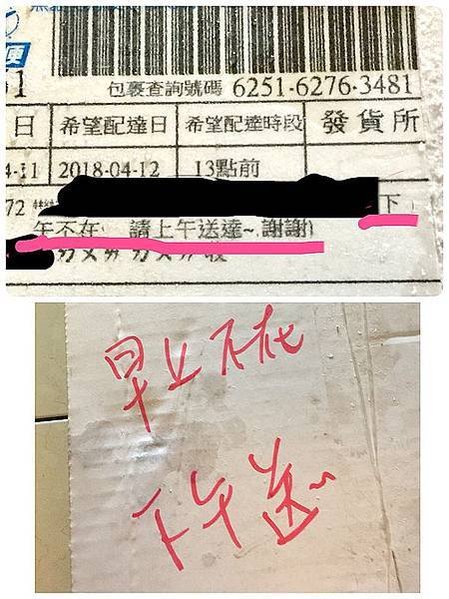 便
01 包裹查詢號碼 6251-6276-3481
日 希望配達日 希望配達時段 發貨所
4-11 2018-04-12 13點前
72 下
午不在 請上午送達~.謝謝)
收
早上不在
下午送~